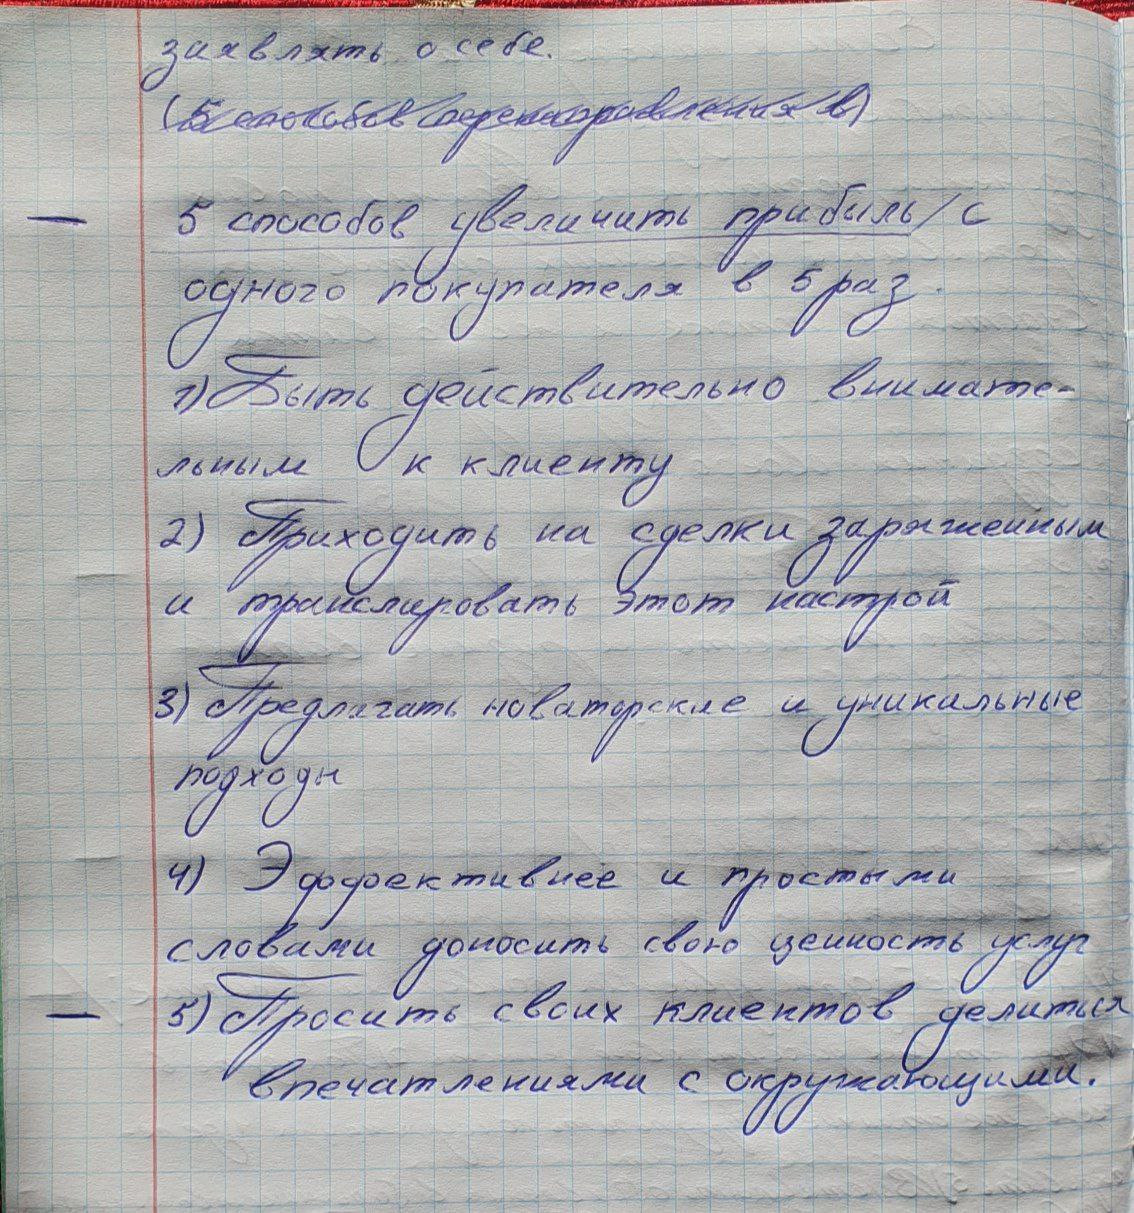 заявлять о себе.
(5 способов перенаправления в)
— 5 способов увеличить прибыль/с
одного покупателя в 5 раз.
1) Быть действительно внимате-
льным к клиенту
2) Приходить на сделки заряженным
и транслировать этот настрой
3) Предлагать новаторские и уникальные
подходы
4) Эффективнее и простыми
словами доносить свою ценность услуг
— 5) Просить своих клиентов делиться
впечатлениями с окружающими.